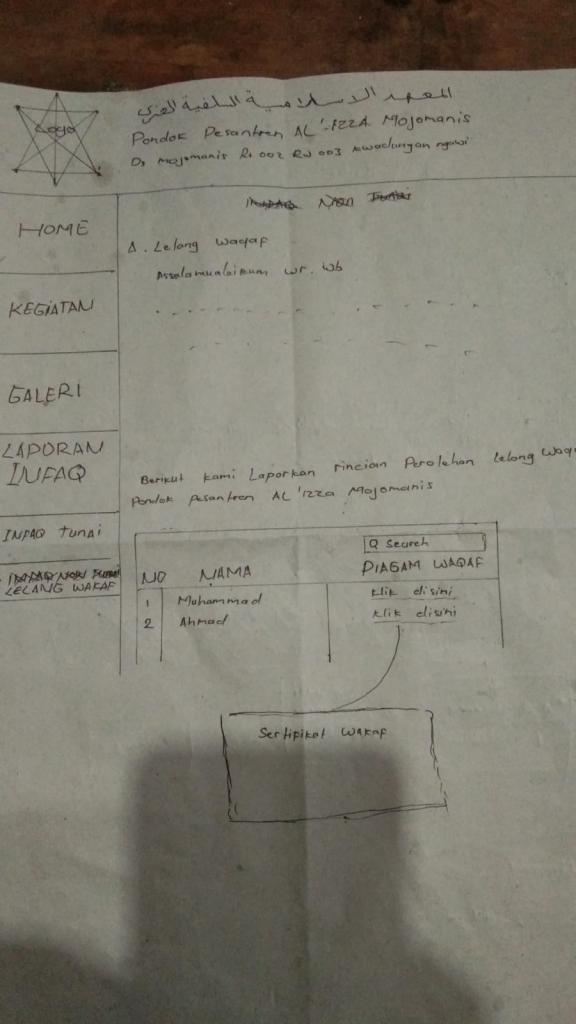 Logo
المعهد الاسلامية السلفية العزى
Pondok Pesantren AL'-IZZA Mojomanis
Ds Mojomanis Rt 002 RW 003 kwadungan ngawi
HOME
KEGIATAN
GALERI
LAPORAN
INFAQ
INFAQ Tunai
LELANG WAKAF
A. Lelang Waqaf
Assalamualaikum wr. wb
Berikut kami Laporkan rincian Perolehan Lelang Waq
Pondok Pesantren AL'IZZA Mojomanis
Q Search
NO NAMA PIAGAM WAQAF
1 Muhammad klik disini
2 Ahmad klik disini
Sertifikat Wakaf